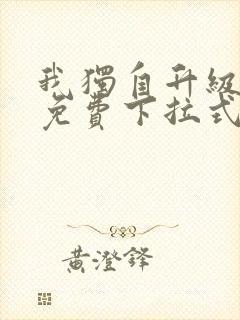 我獨自升級
免費下拉式
黃澄鋒